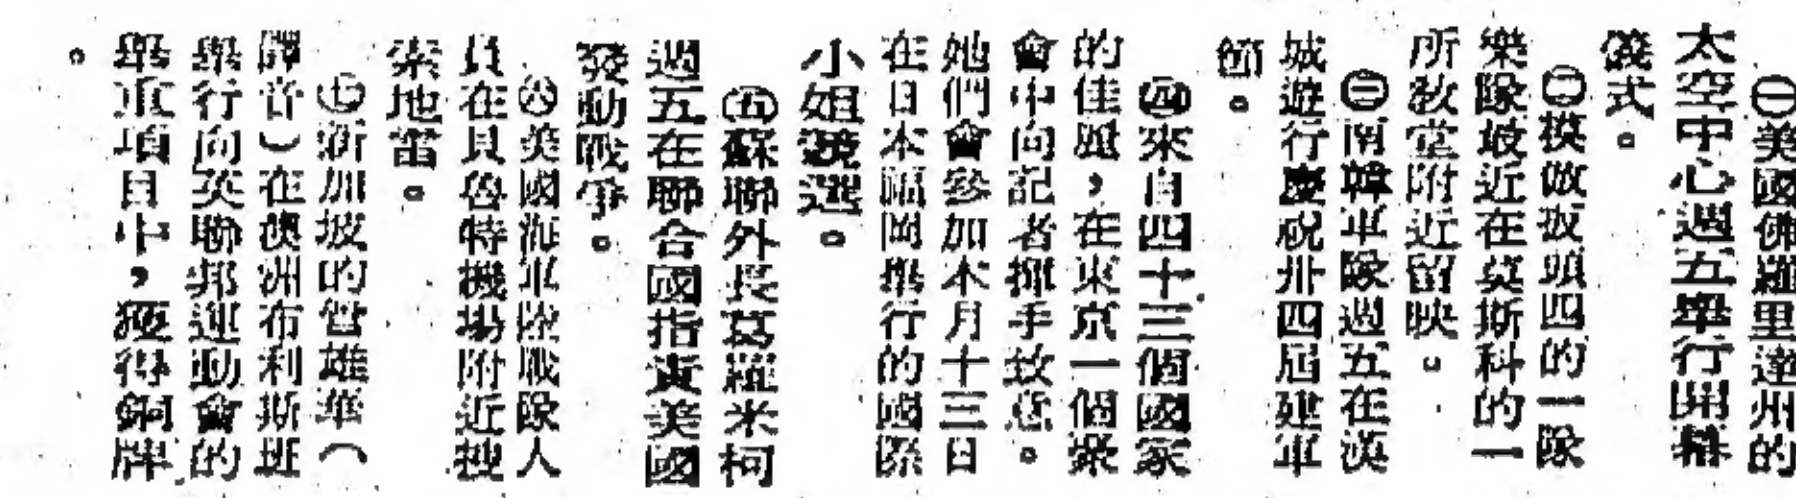 ㊀美國佛羅里達州的
太空中心週五舉行開幕
儀式。
㊁摸倣披頭四的一隊
樂隊最近在莫斯科的一
所教堂附近留映。
㊂南韓軍隊週五在漢
城遊行慶祝卅四屆建軍
節。
㊃來自四十三個國家
的佳麗,在東京一個聚
會中向記者揮手致意。
她們會參加本月十三日
在日本福岡舉行的國際
小姐競選。
㊄蘇聯外長葛羅米柯
週五在聯合國指責美國
發動戰爭。
㊅美國海軍陸戰隊人
員在貝魯特機場附近搜
索地雷。
㊆新加坡的曾雄華(
譯音)在澳洲布利斯班
舉行向英聯邦運動會的
舉重項目中,獲得銅牌
。